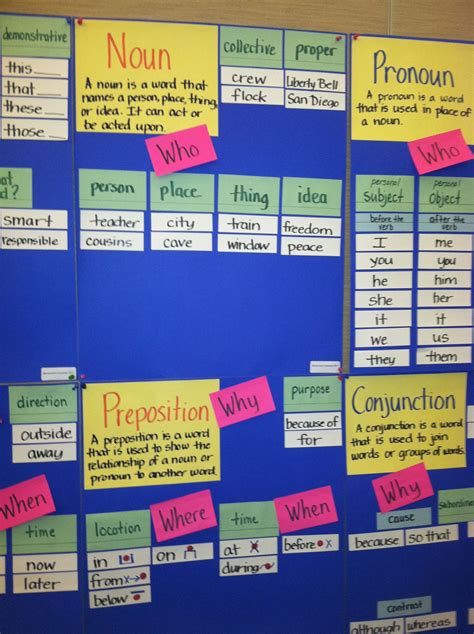 demonstrative
this
that
these
those
smart
responsible
Noun
A noun is a word that
names a person, place, thing,
or idea. It can act or
be acted upon.
Who
collective
crew
flock
proper
Liberty Bell
San Diego
person
teacher
cousins
place
city
cave
thing
train
window
idea
freedom
peace
Pronoun
A pronoun is a word
that is used in place of
a noun.
Who
personal
Subject
before the
verb
I
you
he
she
it
we
they
personal
Object
after the
verb
me
you
him
her
it
us
them
direction
outside
away
When
time
now
later
Preposition
A preposition is a word
that is used to show the
relationship of a noun or
pronoun to another word.
Why
purpose
because of
for
location
in
from
below
Where
on
time
at
during
When
before
Conjunction
A conjunction is a word
that is used to join
words or groups of words.
Why
cause
because
so that
contrast
although
whereas